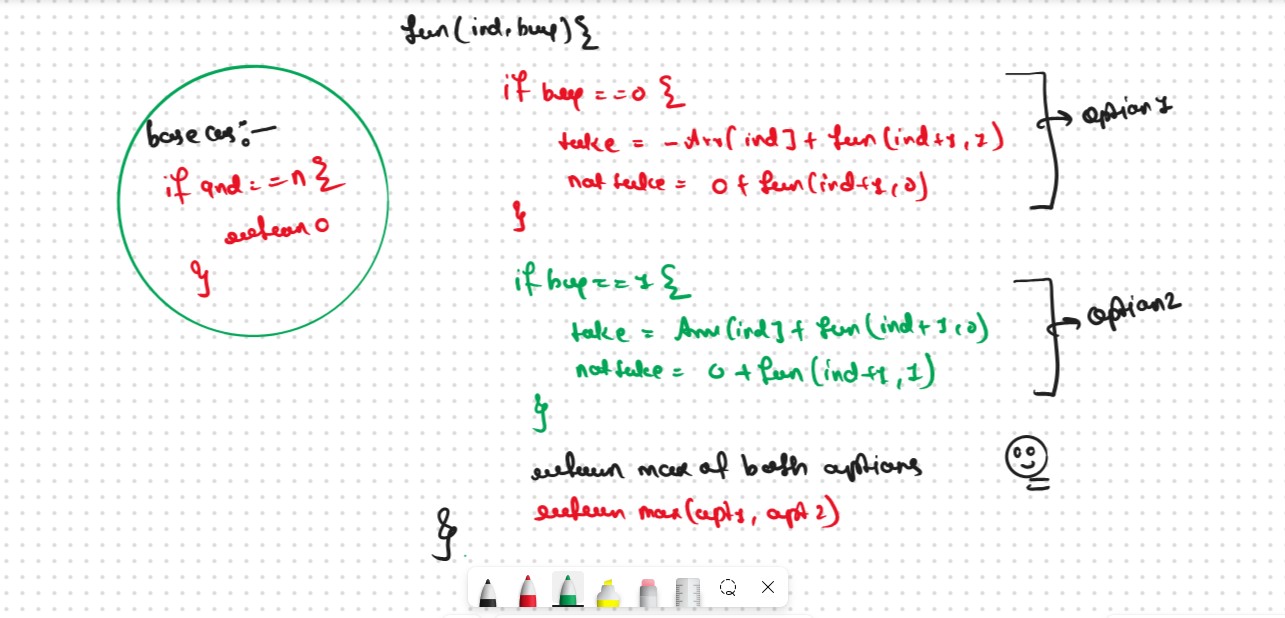 fun(ind, buy){
base cas:-
if ind==n{
return 0
}
if buy==0 {
take = -Arr[ind] + fun(ind+1, 1)
not take = 0 + fun(ind+1, 0)
}
option 1
if buy==1 {
take = Arr[ind] + fun(ind+1, 0)
not take = 0 + fun(ind+1, 1)
}
option 2
return max of both options
return max(opt1, opt 2)
}